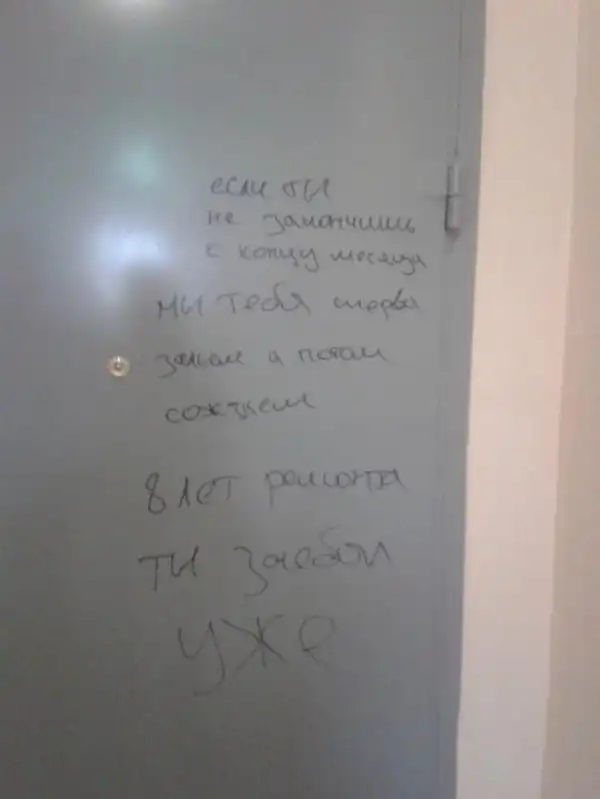 если ти
не закончишь
к концу месяца
ми тебя сперва
зальем а потом
сожжем
8 лет ремонта
ти заебал
уже